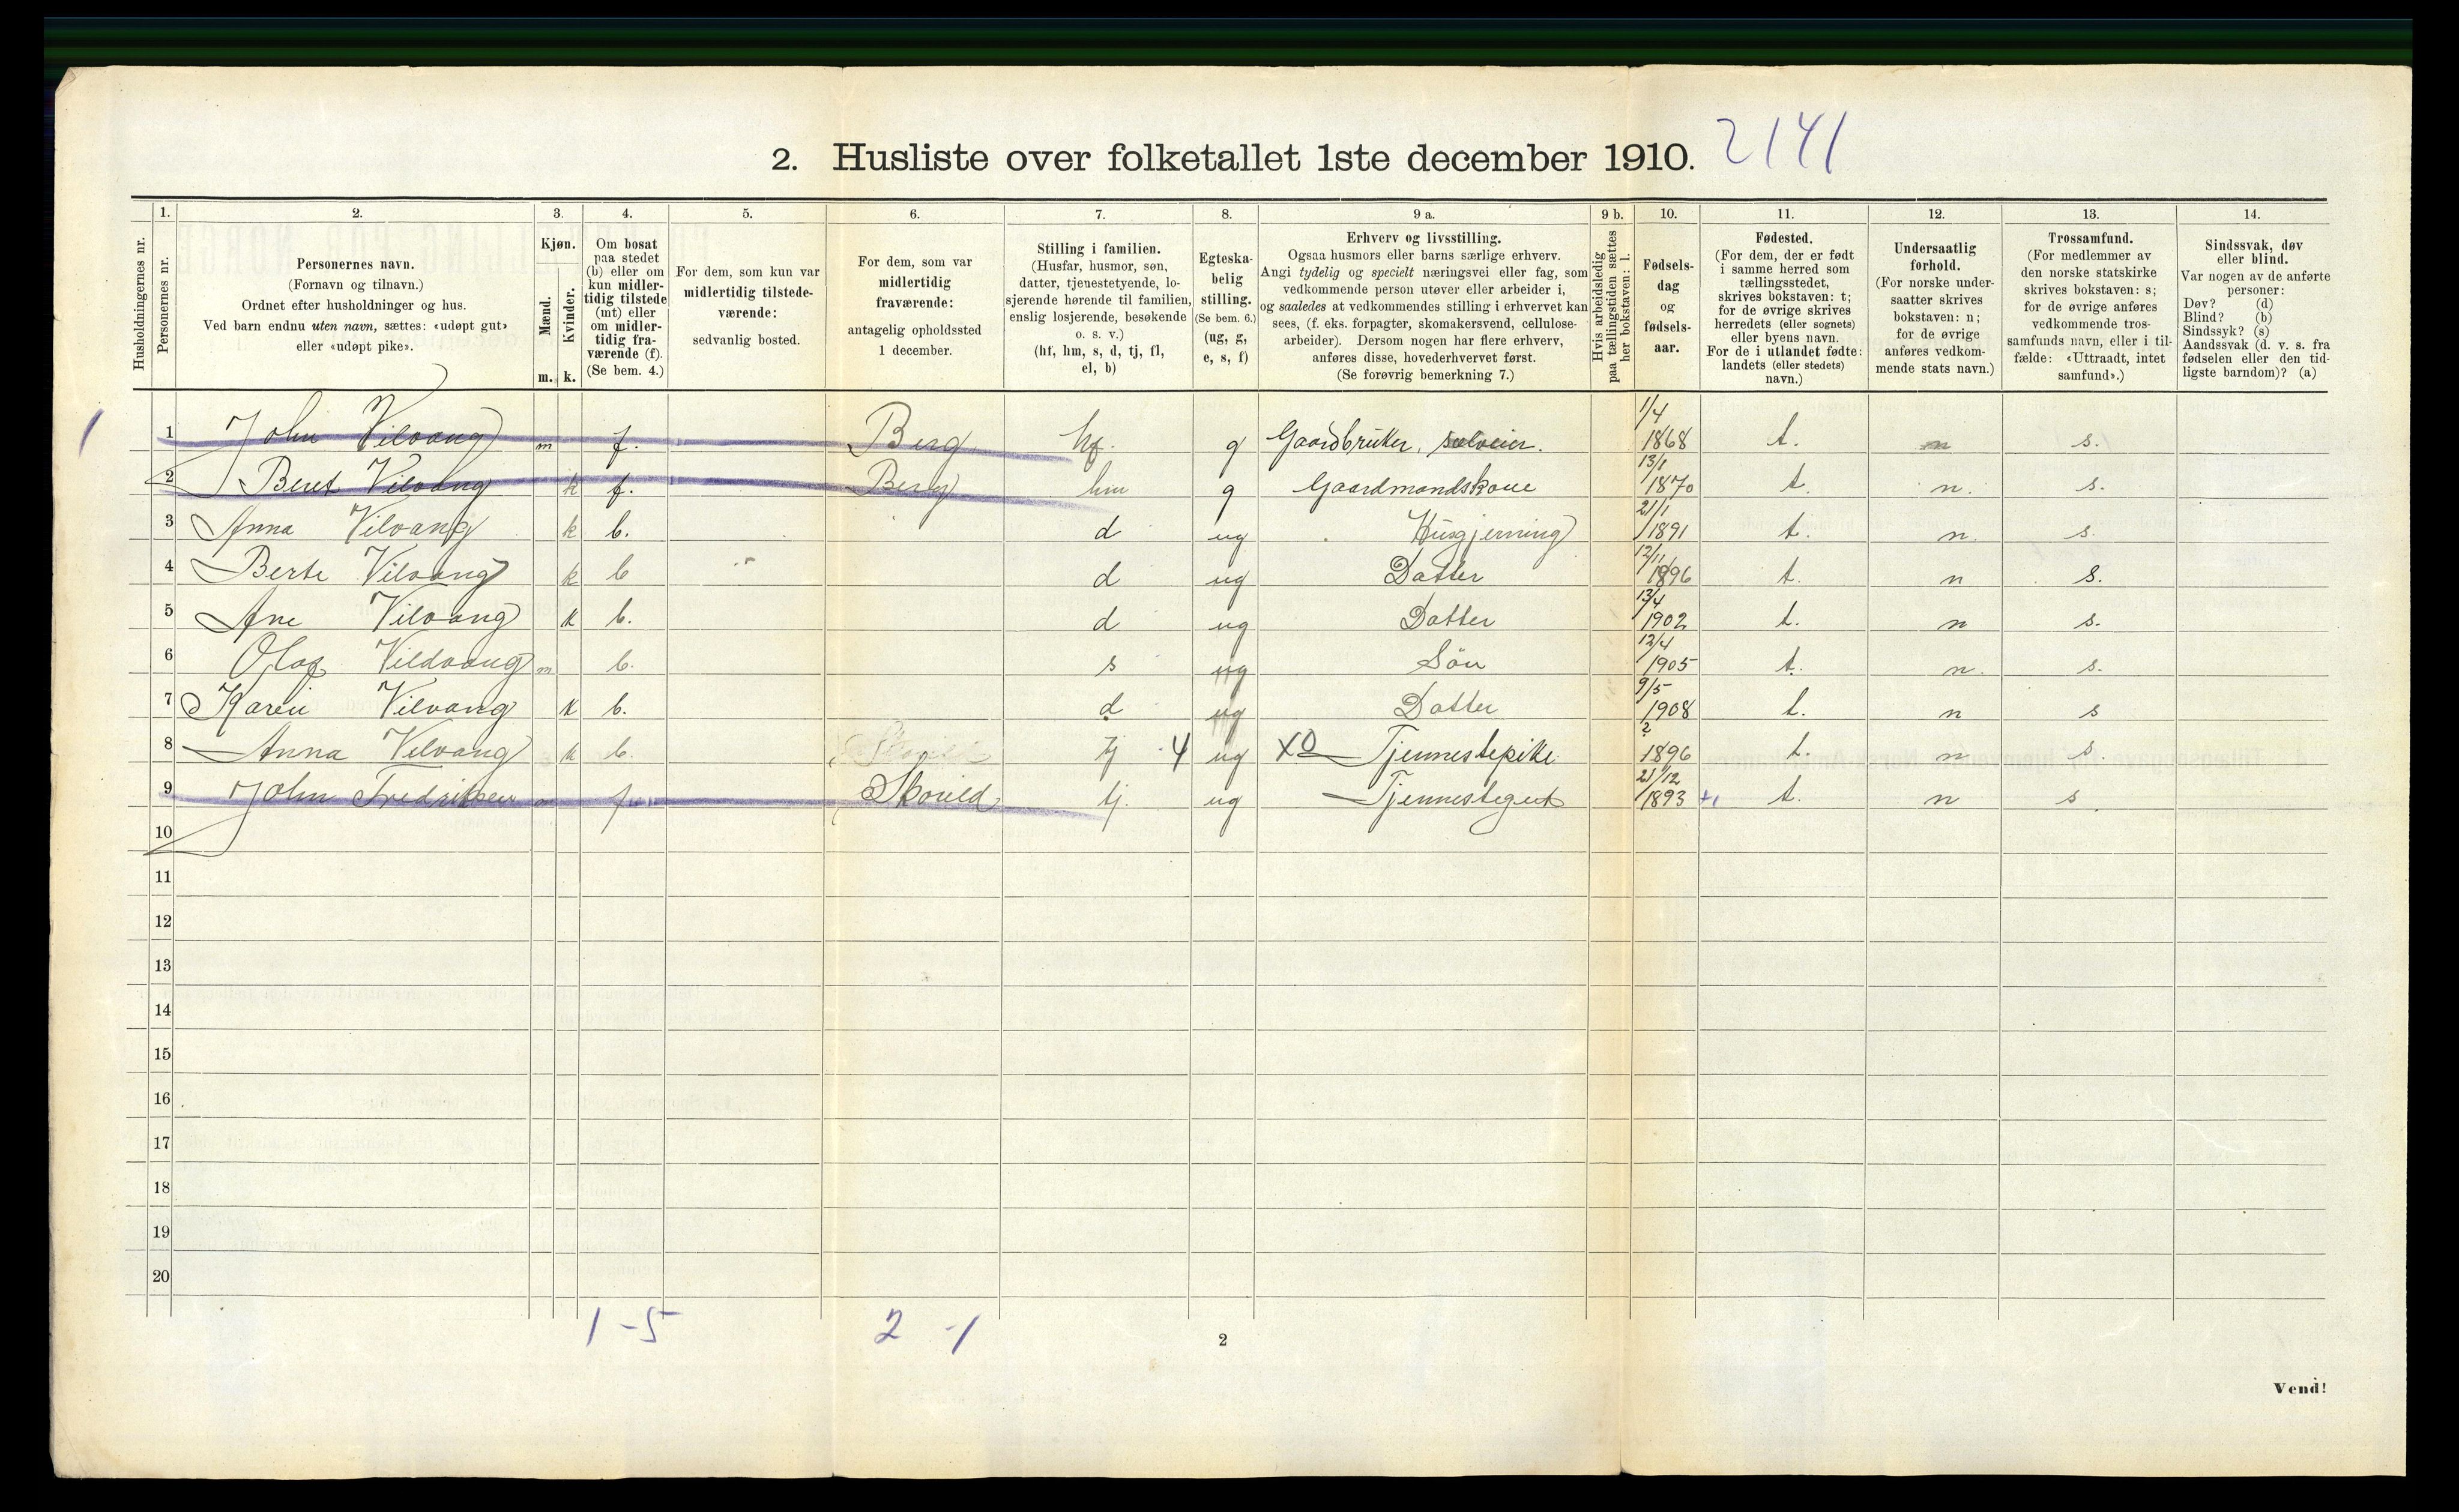 2. Husliste over folketallet 1ste december 1910. 2141
1. 2. 3. 4. 5. 6. 7. 8. 9 a. 9 b. 10. 11. 12. 13. 14.
Husholdningernes nr.
Personernes nr.
Personernes navn.
(Fornavn og tilnavn.)
Ordnet efter husholdninger og hus.
Ved barn endnu uten navn, sættes: «udøpt gut»
eller «udøpt pike».
Kjøn.
Mænd.
Kvinder.
m. k.
Om bosat
paa stedet
(b) eller om
kun midler-
tidig tilstede
(mt) eller
om midler-
tidig fra-
værende (f).
(Se bem. 4.)
For dem, som kun var
midlertidig tilstede-
værende:
sedvanlig bosted.
For dem, som var
midlertidig
fraværende:
antagelig opholdssted
1 december.
Stilling i familien.
(Husfar, husmor, søn,
datter, tjenestetyende, lo-
sjerende hørende til familien,
enslig losjerende, besøkende
o. s. v.)
(hf, hm, s, d, tj, fl,
el, b)
Egteska-
belig
stilling.
(Se bem. 6.)
(ug, g,
e, s, f)
Erhverv og livsstilling.
Ogsaa husmors eller barns særlige erhverv.
Angi tydelig og specielt næringsvei eller fag, som
vedkommende person utøver eller arbeider i,
og saaledes at vedkommendes stilling i erhvervet kan
sees, (f. eks. forpagter, skomakersvend, cellulose-
arbeider). Dersom nogen har flere erhverv,
anføres disse, hovederhvervet først.
(Se forøvrig bemerkning 7.)
Hvis arbeidsledig
paa tællingstiden sættes
her bokstaven: l.
Fødsels-
dag
og
fødsels-
aar.
Fødested.
(For dem, der er født
i samme herred som
tællingsstedet,
skrives bokstaven: t;
for de øvrige skrives
herredets (eller sognets)
eller byens navn.
For de i utlandet fødte:
landets (eller stedets)
navn.)
Undersaatlig
forhold.
(For norske under-
saatter skrives
bokstaven: n;
for de øvrige
anføres vedkom-
mende stats navn.)
Trossamfund.
(For medlemmer av
den norske statskirke
skrives bokstaven: s;
for de øvrige anføres
vedkommende tros-
samfunds navn, eller i til-
fælde: «Uttraadt, intet
samfund».)
Sindssvak, døv
eller blind.
Var nogen av de anførte
personer:
Døv? (d)
Blind? (b)
Sindssyk? (s)
Aandssvak (d. v. s. fra
fødselen eller den tid-
ligste barndom)? (a)
1 1 John Vilvang m f. Berg hf. g Gaardbruker, selveier. 1/4 1868 t. n s.
2 Beret Vilvang k f. Berg hm g Gaardmandskone 13/1 1870 t. n. s.
3 Anna Vilvang k b. d ug Husgjerning 21/1 1891 t. n. s.
4 Berte Vilvang k b d ug Datter 12/11 1896 t. n s.
5 Ane Vilvang k b. d ug Datter 13/4 1902 t. n s.
6 Olaf Vildvang m b. s ug Sön 12/4 1905 t. n. s.
7 Karen Vilvang k b. d ug Datter 9/5 1908 t. n s
8 Anna Vilvang k b. tj 4 ug XO Tjennestepike ? 1896 t. n s.
9 John Fredriksen m f Skovild tj. ug Tjennestegut 21/12 1893 +1 t. n s
10
11
12
13
14
15
16
17
18
19
20
1 - 5 2 - 1
2
Vend!